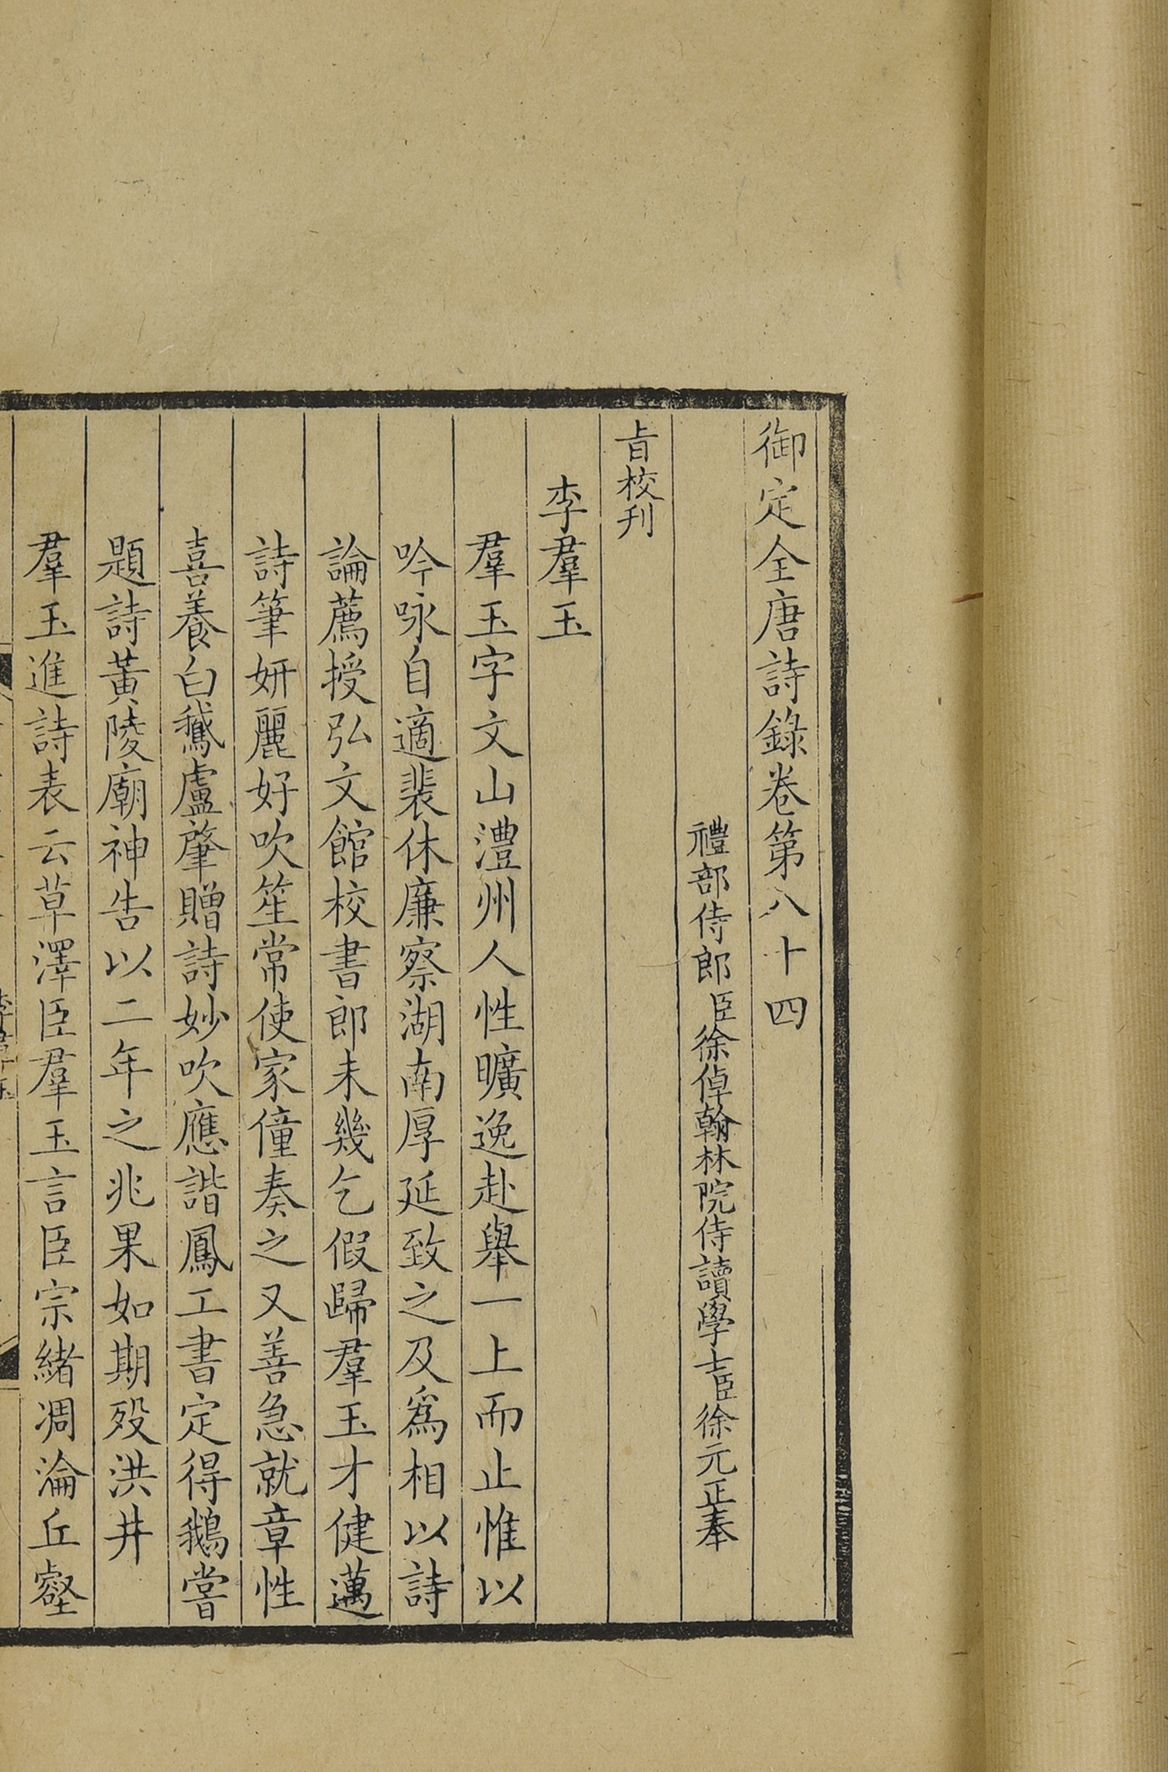 御定全唐詩錄卷第八十四
禮部侍郎臣徐倬翰林院侍讀學士臣徐元正奉
旨校刊
李羣玉
羣玉字文山澧州人性曠逸赴舉一上而止惟以
吟咏自適裴休廉察湖南厚延致之及爲相以詩
論薦授弘文館校書郎未幾乞假歸羣玉才健邁
詩筆妍麗好吹笙常使家僮奏之又善急就章性
喜養白鵞盧肇贈詩妙吹應諧鳳工書定得鵝嘗
題詩黃陵廟神告以二年之兆果如期歿洪井
羣玉進詩表云草澤臣羣玉言臣宗緒凋淪丘壑
李羣玉